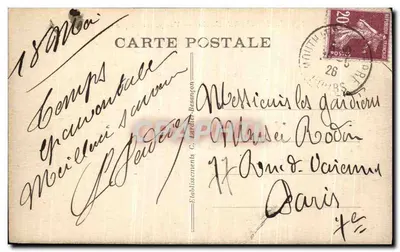 18 Mai
CARTE POSTALE
20
26
Temps
épouvantable
Meilleur souvenir
Messieurs les gardiens
Musée Rodin
77 Rue de Varenne
Paris
7e
Etablissements C. Lardier Besançon